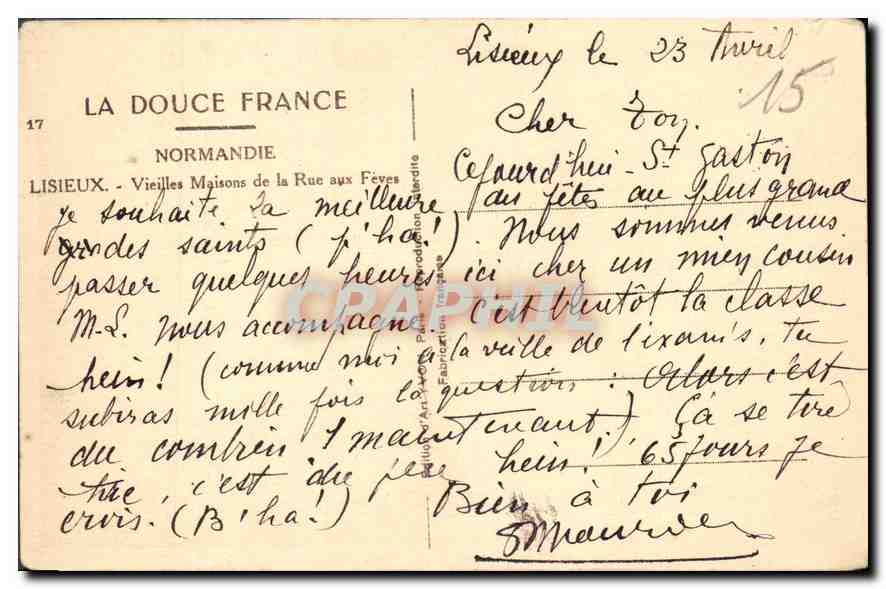 Lisieux le 23 Avril
15
LA DOUCE FRANCE
17
NORMANDIE
LISIEUX. - Vieilles Maisons de la Rue aux Fèves
Édition d'Art YVON Paris - Reproduction interdite
Fabrication française
CPAPHIL
Cher
Cejourd'hui - St Gaston
je souhaite la meilleure des fêtes au plus grand
des saints ( ha!). Nous sommes venus
passer quelques heures ici cher un mien cousin
M-L. nous accompagne. C'est bientôt la classe
hein! (comme moi à la veille de l'exams, tu
subiras mille fois la question : Alors c'est
du combien ! maintenant.) Ça se tire
hein! 65 jours je
tire, c'est du père
crois. (B'ha!)
Bien à toi